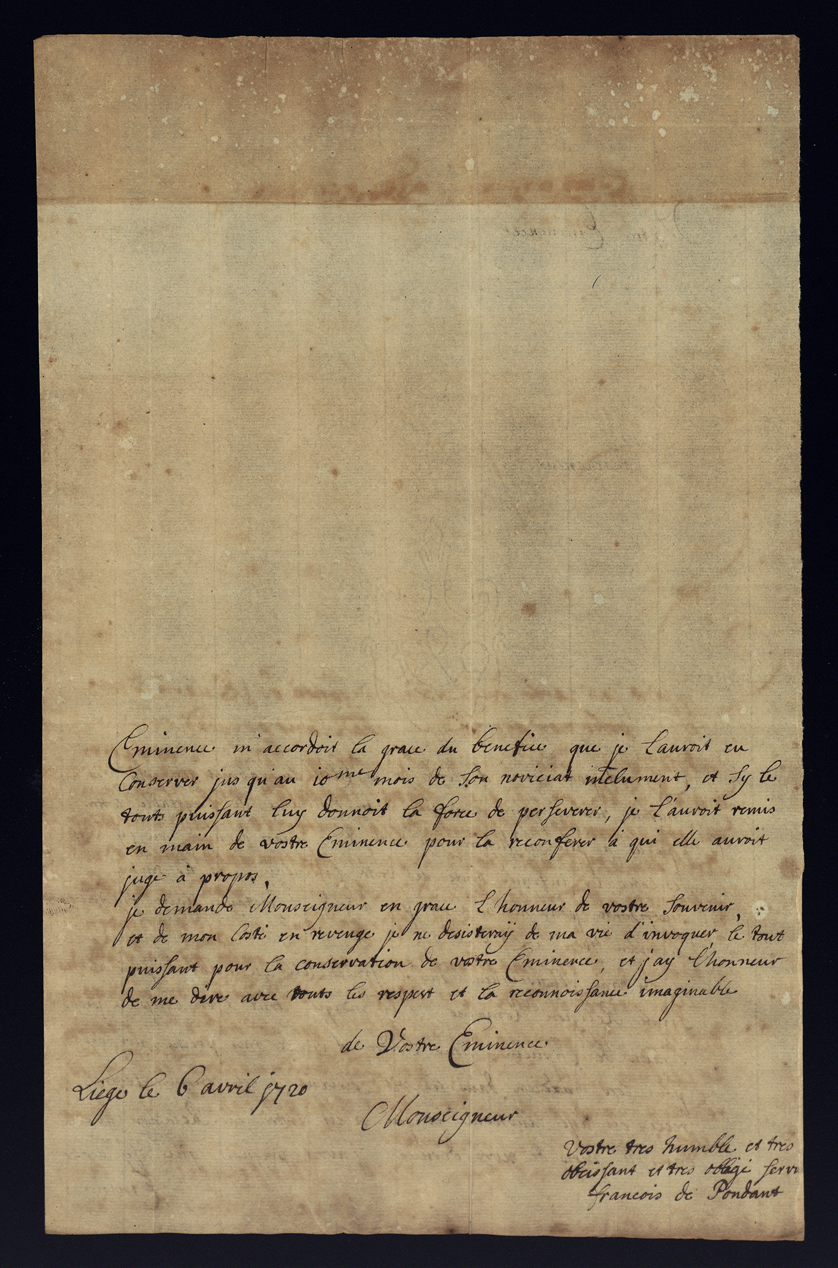 Eminence m'accordoit la grace du benefice que je l'auroit eu
Conserver jusqu'au 10me mois de son noviciat inclument, et sy le
touts puissant luy donnoit la force de perseverer, je l'auroit remis
en main de vostre Eminence pour la reconferer à qui elle auroit
jugé à propos.
je demande Monseigneur en grace l'honneur de vostre souvenir,
et de mon Costé en revenge je ne desisteray de ma vie d'invoquer le tout
puissant pour la conservation de vostre Eminence, et j'ay l'honneur
de me dire avec touts les respect et la reconnoissance imaginable
de Vostre Eminence
Liege le 6 avril 1720
Monseigneur
Vostre tres humble et tres
obeissant et tres obligé serv
francois de Pondant